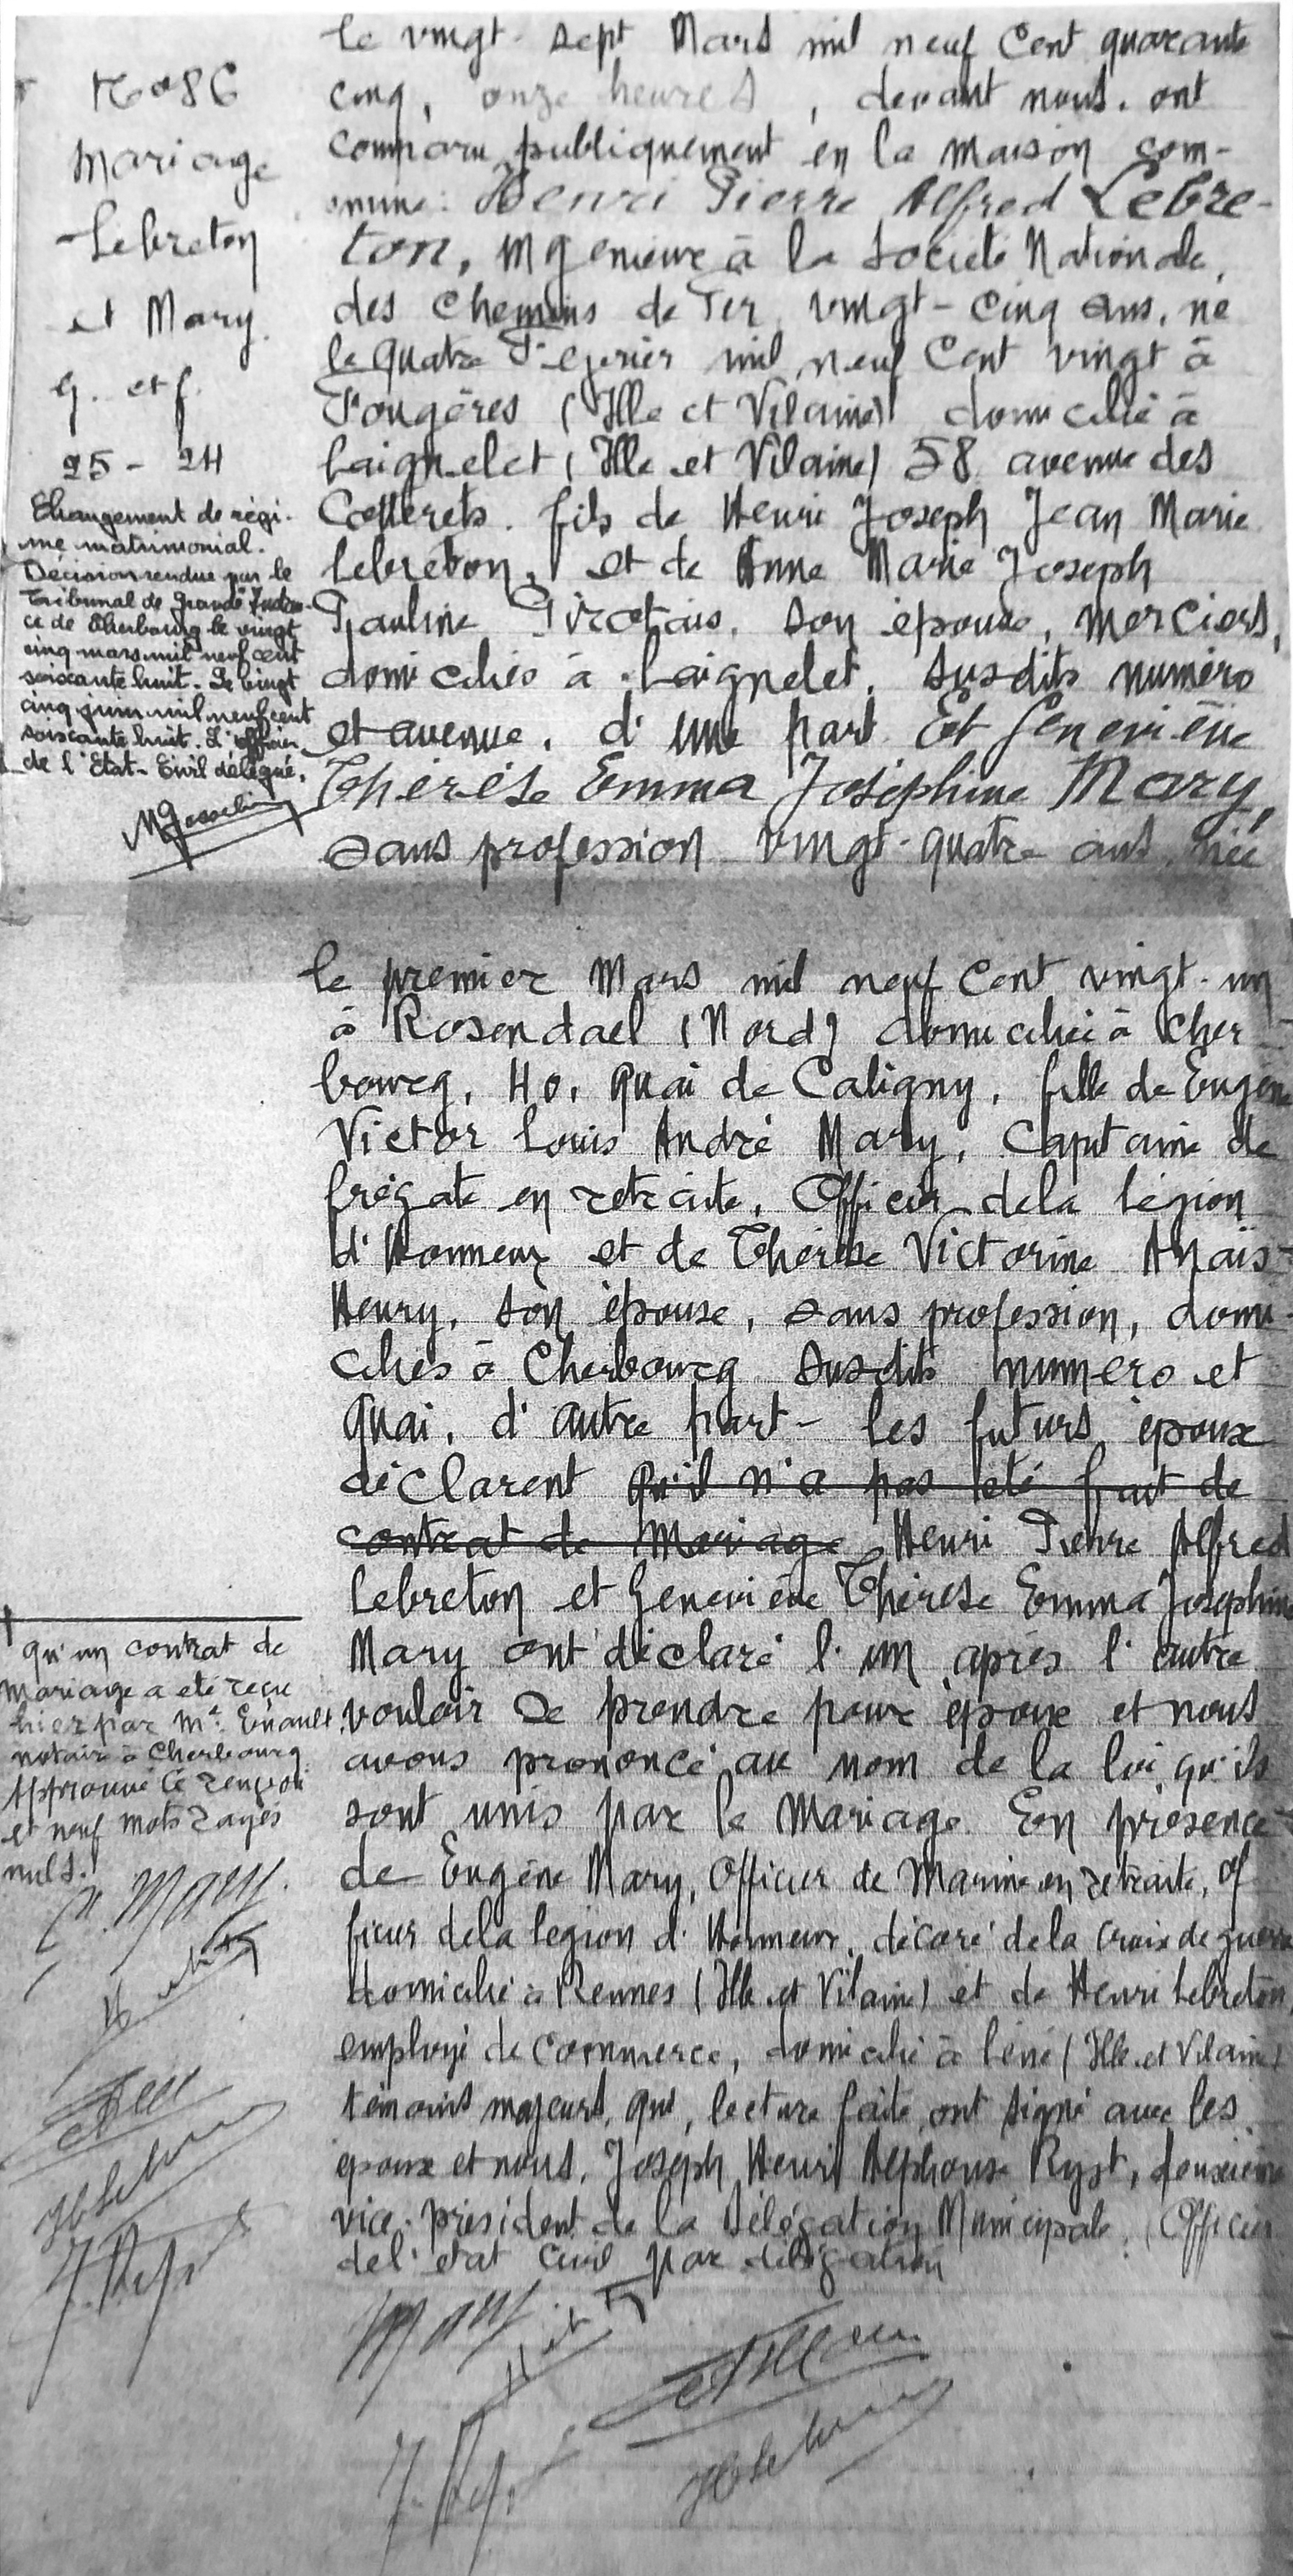 N° 86
Mariage
Lebreton
et Mary
G. et f.
25 - 24
Changement de régi-
me matrimonial.
Décision rendue par le
Tribunal de Grande Instan-
ce de Cherbourg le vingt
cinq mars mil neuf cent
soixante huit. Le vingt
cinq juin mil neuf cent
soixante huit. L'officier
de l'Etat-Civil délégué.
le vingt-sept Mars mil neuf Cent quarante
cinq, onze heures, devant nous. ont
comparu publiquement en la maison com-
mune: Henri Pierre Alfred Lebre-
ton, ingénieur à la Société Nationale
des Chemins de Fer, vingt-cinq ans, né
le quatre Février mil neuf Cent vingt à
Fougères (Ille et Vilaine) domicilié à
Laignelet (Ille et Vilaine) 58 avenue des
Cotterets. fils de Henri Joseph Jean Marie
Lebreton, et de Anne Marie Joseph
Pauline Pirotais, son épouse, merciers,
domiciliés à Laignelet, susdits numéro
et avenue, d'une part Et Geneviève
Thérèse Emma Joséphine Mary,
sans profession vingt-quatre ans, née
le premier Mars mil neuf Cent vingt-un
à Rosendael (Nord) domiciliée à Cher
bourg, 40, Quai de Caligny, fille de Eugène
Victor Louis André Mary, Capitaine de
frégate en retraite, Officier de la légion
d'Honneur et de Thérèse Victorine Anaïs
Henry, son épouse, sans profession, domi-
ciliés à Cherbourg susdits numéro et
quai, d'autre part - les futurs époux
déclarent qu'il n'a pas été fait de
contrat de mariage Henri Pierre Alfred
Lebreton et Geneviève Thérèse Emma Joséphine
Mary ont déclaré l'un après l'autre
vouloir se prendre pour époux et nous
avons prononcé au nom de la loi qu'ils
sont unis par le mariage. En présence
de Eugène Mary, Officier de Marine en retraite, of
ficier de la légion d'Honneur, décoré de la croix de guerre
domicilié à Rennes (Ille et Vilaine) et de Henri Lebreton,
employé de commerce, domicilié à (Ille et Vilaine)
témoins majeurs, qui, lecture faite, ont signé avec les
époux et nous, Joseph Henri Alphonse Ryst, deuxième
vice-président de la Délégation Municipale, Officier
de l'état civil par délégation
qu'un contrat de
mariage a été reçu
hier par Me. Enault
notaire à Cherbourg
Approuvé le renvoi
et neuf mots rayés
nuls.
Mary